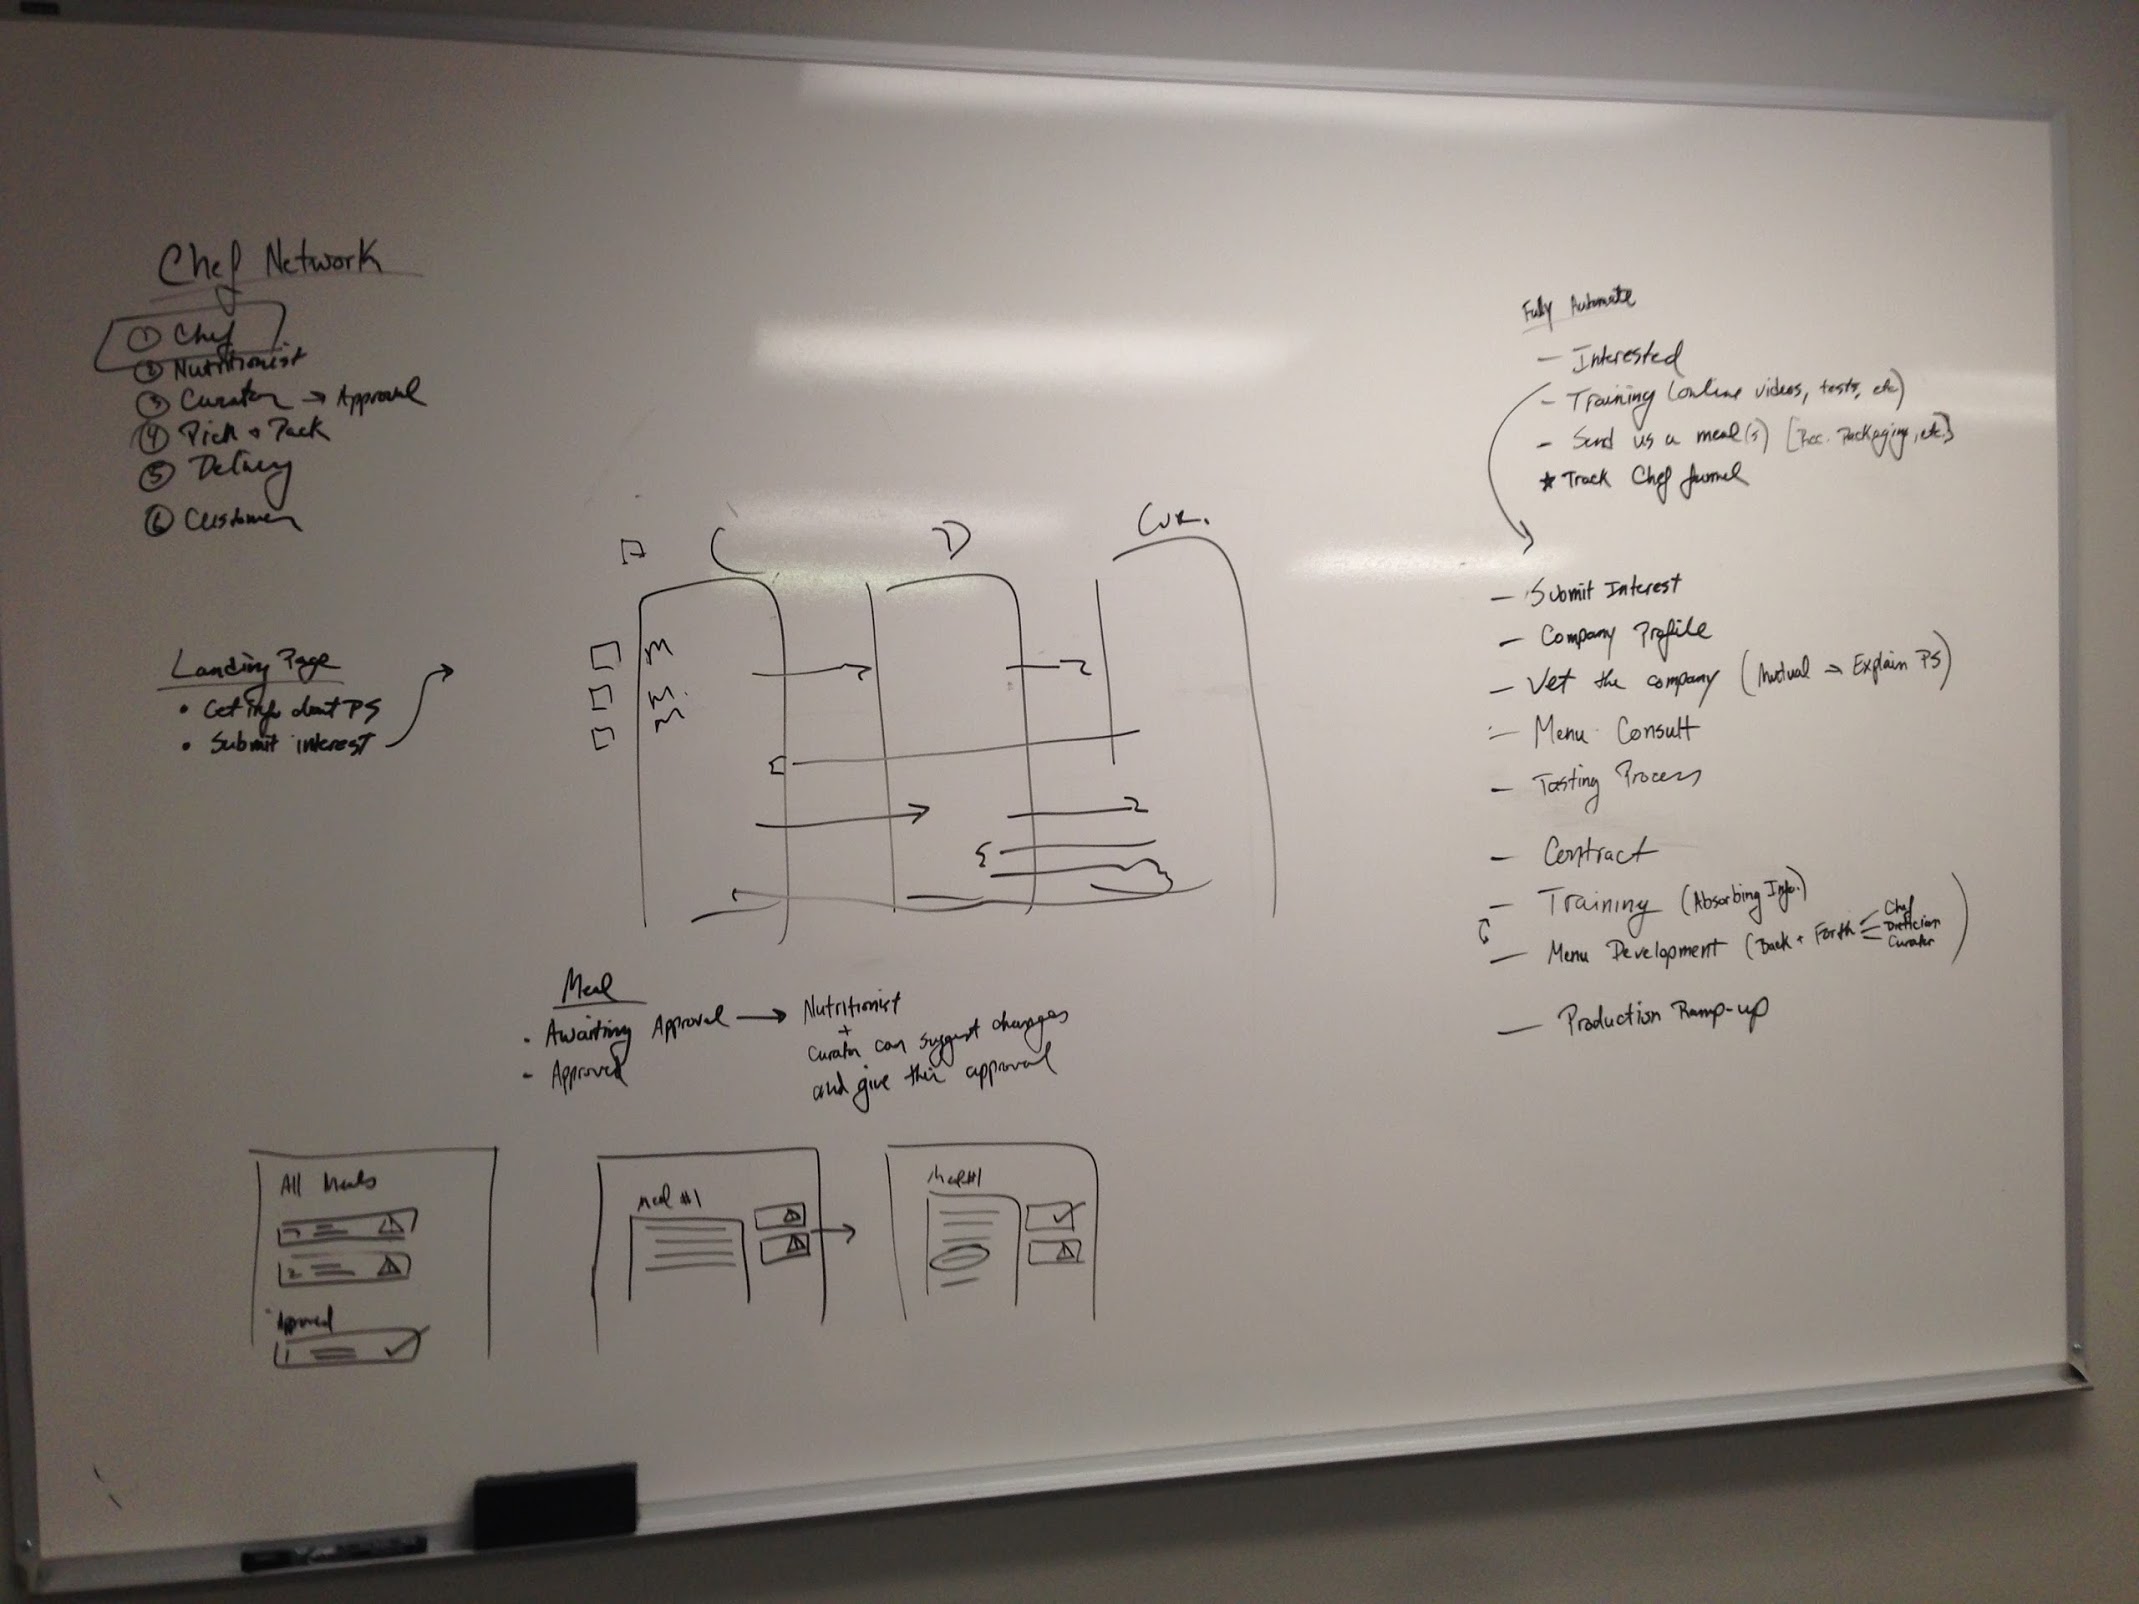 Chef Network
① Chef
② Nutritionist
③ Curator → Approval
④ Pick + Pack
⑤ Delivery
⑥ Customer
Landing Page
• Get info about PS
• Submit interest
C D Cur.
M
M.
M
Meal
• Awaiting Approval → Nutritionist
+
Curator can suggest changes
and give their approval
- Approved
All Meals
2
Approved
1
Meal #1
Meal #1
Fully Automate
- Interested
- Training (online videos, tests, etc)
- Send us a meal(s) [Rec. Packaging, etc.]
* Track Chef funnel
- Submit Interest
- Company Profile
- Vet the company (Mutual → Explain PS)
- Menu Consult
- Tasting Process
- Contract
- Training (Absorbing Info.)
- Menu Development (Back + Forth Chef
Dietician
Curator)
- Production Ramp-up